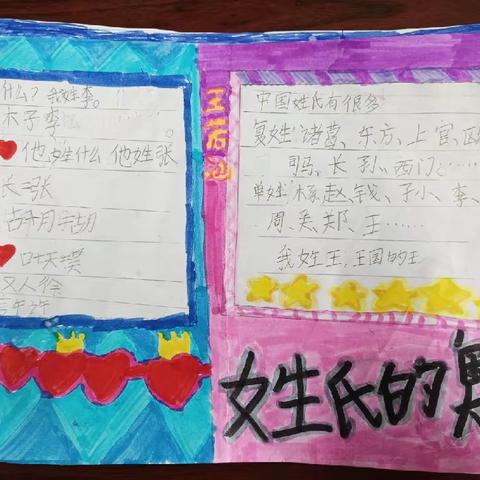 什么？我姓李。
木子李。
他姓什么 他姓张
长=张
人徐
中国姓氏有很多
复姓：诸葛、东方、上官、
司马、长孙、西门……
单姓：赵、钱、李、
周、吴、郑、王……
我姓王，王国的王
姓氏的